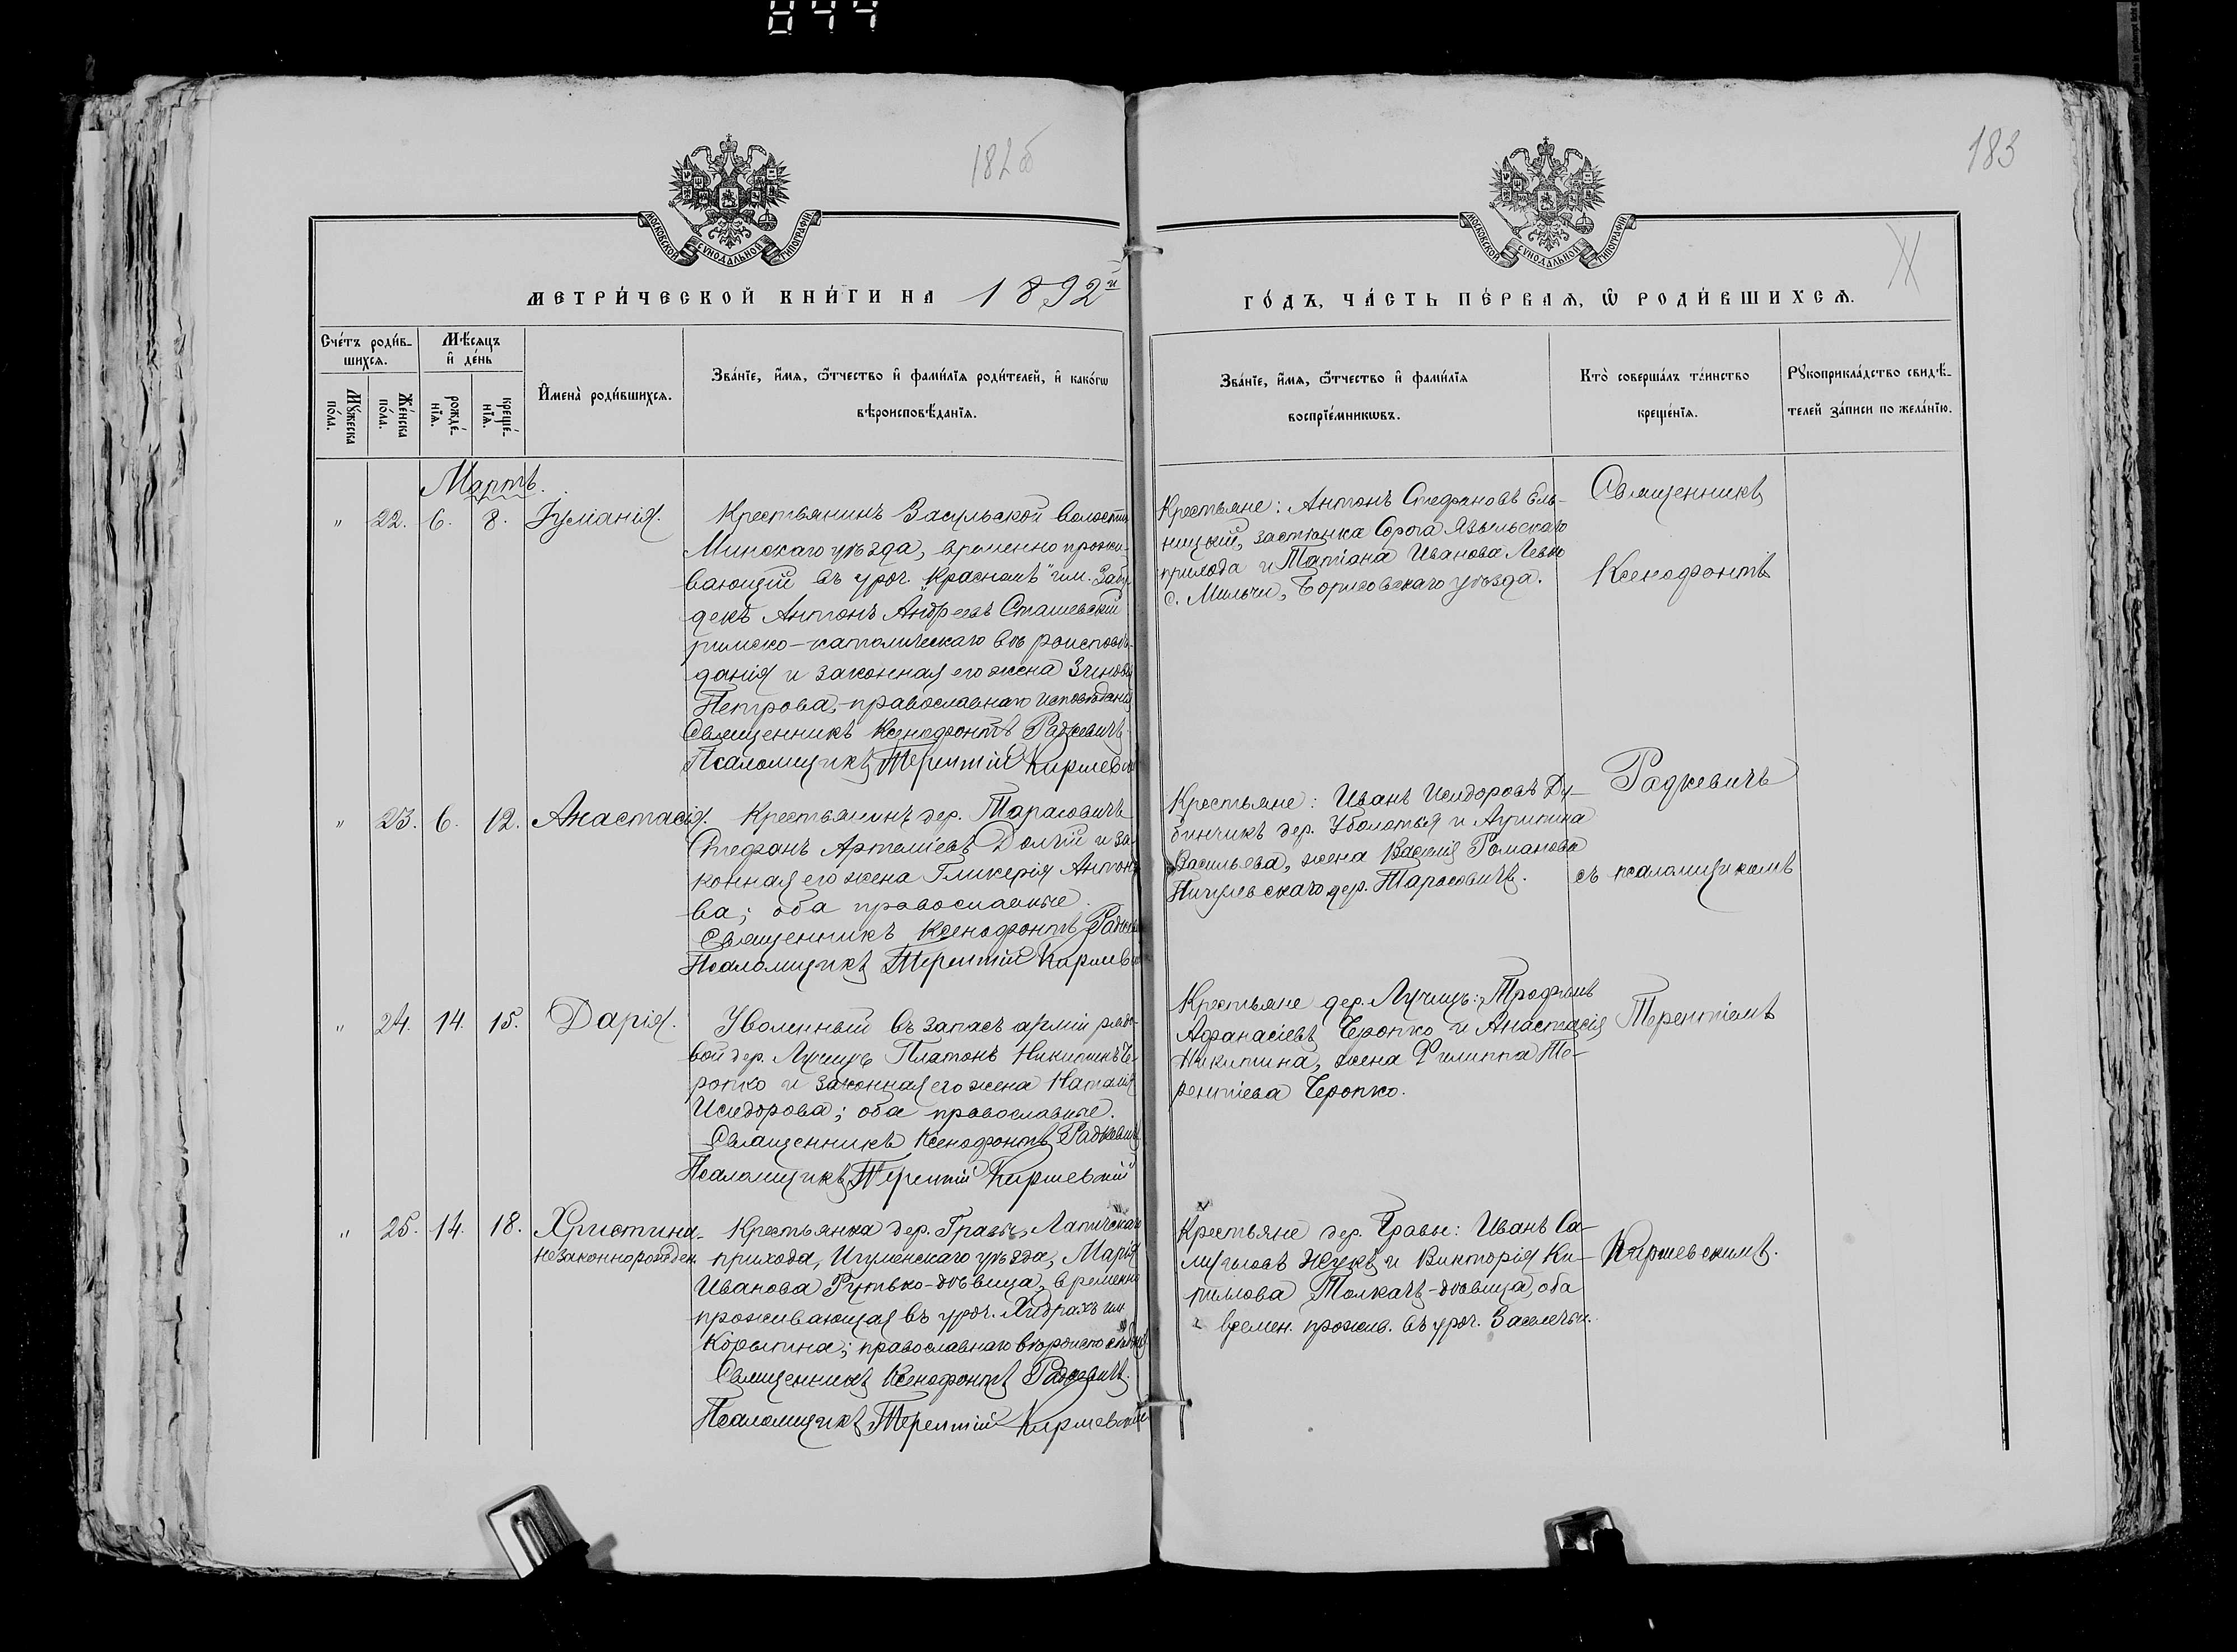 844
182б
183
МОСКОВСКОЙ СУНОДАЛЬНОЙ ТИПОГРАФІИ
МОСКОВСКОЙ СУНОДАЛЬНОЙ ТИПОГРАФІИ
МЕТРИ́ЧЕСКОЙ КНИ́ГИ НА 1892й
ГО́ДЪ, ЧА́СТЬ ПЕ́РВАЯ, Ѿ РОДИ́ВШИХСѦ.
Сче́тъ роди́в-
шихсѧ.
Мꙋ́жеска по́ла.
Же́нска по́ла.
Мѣ́сѧцъ
и҆ де́нь
рожде́-нїѧ.
креще́-нїѧ.
И҆мена̀ роди́вшихсѧ.
Зва́нїе, и҆́мѧ, ѻ҆́тчество и҆ фами́лїѧ роди́телей, и҆ како́гѡ
вѣроисповѣ́данїѧ.
Зва́нїе, и҆́мѧ, ѻ҆́тчество и҆ фами́лїѧ
воспрїе́мникѡвъ.
Кто̀ соверша́лъ та́инство
креще́нїѧ.
Рꙋкоприкла́дство свидѣ́-
телей за́писи по жела́нїю.
Мартъ.
" 22. 6. 8. Іуліанія.
Крестьянинъ Засульской волости
Минскаго уѣзда, временно прожи-
вающій въ уроч. "Красномъ" им.
Антонъ Андреевъ Сташевскій
римско-католическаго вѣроисповѣ-
данія и законная его жена
Петрова, православнаго исповѣданія
Священникъ Ксенофонтъ Радкевичъ
Псаломщикъ Терентій Киршевскій
Крестьяне: Антонъ Стефановъ Ель-
ницкій, застѣнка Язвильскаго
прихода и Татіана Иванова
с. Мильчи, Борисовскаго уѣзда.
Священникъ
Ксенофонтъ
Радкевичъ
съ псаломщикомъ
Терентіемъ
Киршевскимъ.
" 23. 6. 12. Анастасія.
Крестьянинъ дер. Тарасовичъ
Стефанъ Артеміевъ Долгій и за-
конная его жена Гликерія Антоно-
ва; оба православные.
Священникъ Ксенофонтъ Радкевичъ
Псаломщикъ Терентій Киршевскій
Крестьяне: Иванъ Исидоровъ Ду-
бинчикъ дер. Уболотья и
Васильева, жена Василія Романова
дер. Тарасовичъ.
" 24. 14. 15. Дарія.
Уволенный въ запасъ арміи рядо-
вой дер. Лучицъ Платонъ Никитинъ Че-
ропко и законная его жена Наталія
Исидорова; оба православные.
Священникъ Ксенофонтъ Радкевичъ
Псаломщикъ Терентій Киршевскій
Крестьяне дер. Лучицъ: Трофимъ
Афанасіевъ Черопко и Анастасія
Никитина, жена Филиппа Те-
рентіева Черопко.
" 25. 14. 18. Христина
незаконнорожден.
Крестьянка дер. Гравы, Лапичскаго
прихода, Игуменскаго уѣзда, Марія
Иванова Рутько-дѣвица, временно
проживающая въ уроч. им.
Корытна; православнаго вѣроисповѣданія
Священникъ Ксенофонтъ Радкевичъ.
Псаломщикъ Терентій Киршевскій
Крестьяне дер. Гравы: Иванъ Са-
муиловъ Жукъ и Викторія Ки-
риллова Толкачъ-дѣвица, оба
времен. прожив. въ уроч.